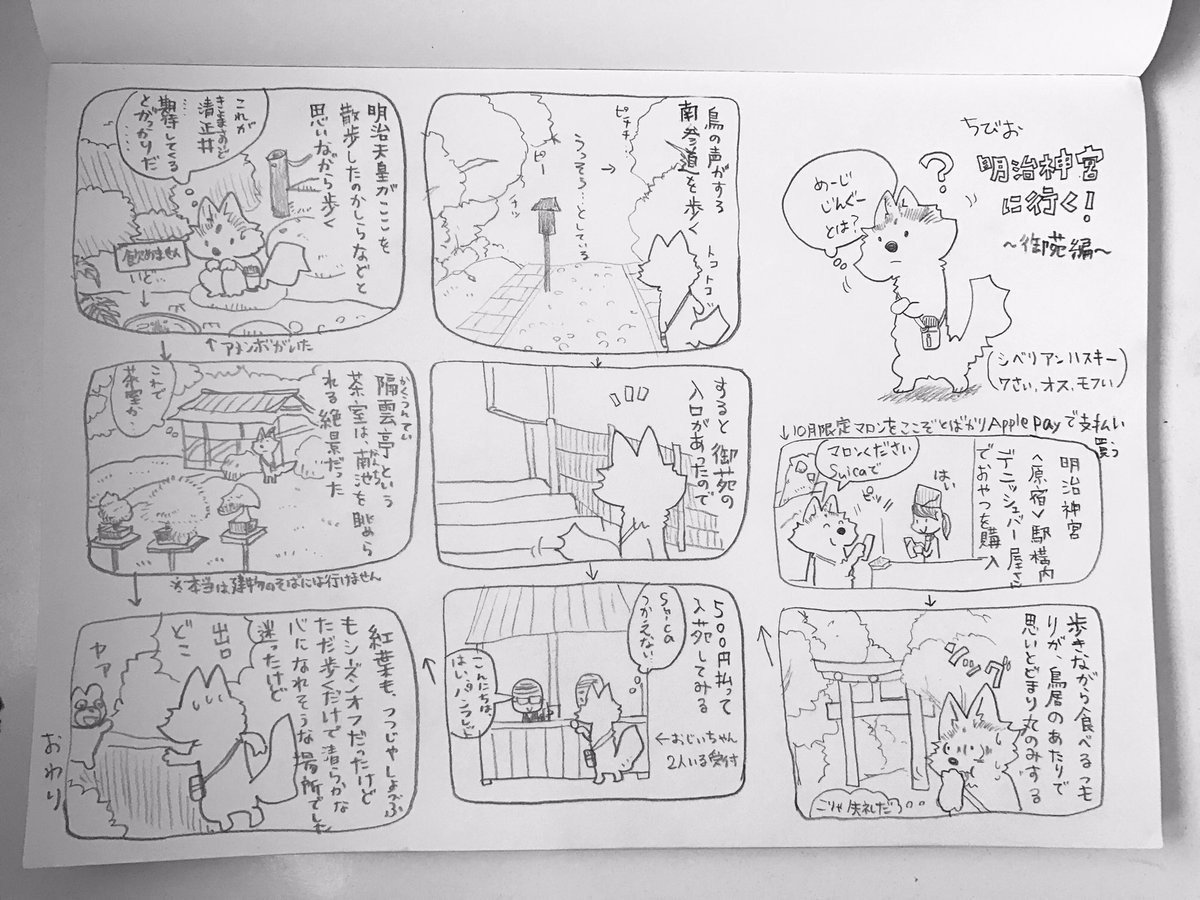 ちびお
明治神宮
に行く!
~御苑編~
?
めーじ
じんぐー
とは?
(シベリアンハスキー)
(7さい、オス、モフい)
↓10月限定マロンをここぞとばかりApple Payで支払い
買う
明治神宮
<原宿>駅構内
デニッシュバー屋さん
でおやつを購入
マロンください
Suicaで
ピッ
はい
歩きながら食べるつも
りが、鳥居のあたりで
思いとどまり丸のみする
ングング
こりゃ失礼だろ・・
鳥の声がする
南参道を歩く
ピチチ…
→
うっそう…としている
ピー
チッ
トコトコ
すると御苑の
入口があったので
500円払って
入苑してみる
Suica
つかえない…
こんにちは、
はい、パンフレット
←おじいちゃん
2人いる受付
明治天皇がここを
散歩したのかしらなどと
思いながら歩く
これが
きよまさのいど
清正井
……
期待してくる
とがっかりだ
……
飲めません
いど
↓
↑アメンボがいた
かくうんてい
隔雲亭という
茶室は、南池を眺めら
なんち
れる絶景だった
これで
茶室か、
※本当は建物のそばには行けません
紅葉も、つつじやしょうぶ
もシーズンオフだったけど
ただ歩くだけで清らかな
心になれそうな場所でした
迷ったけど
出口
どこ
ヤァ
おわり